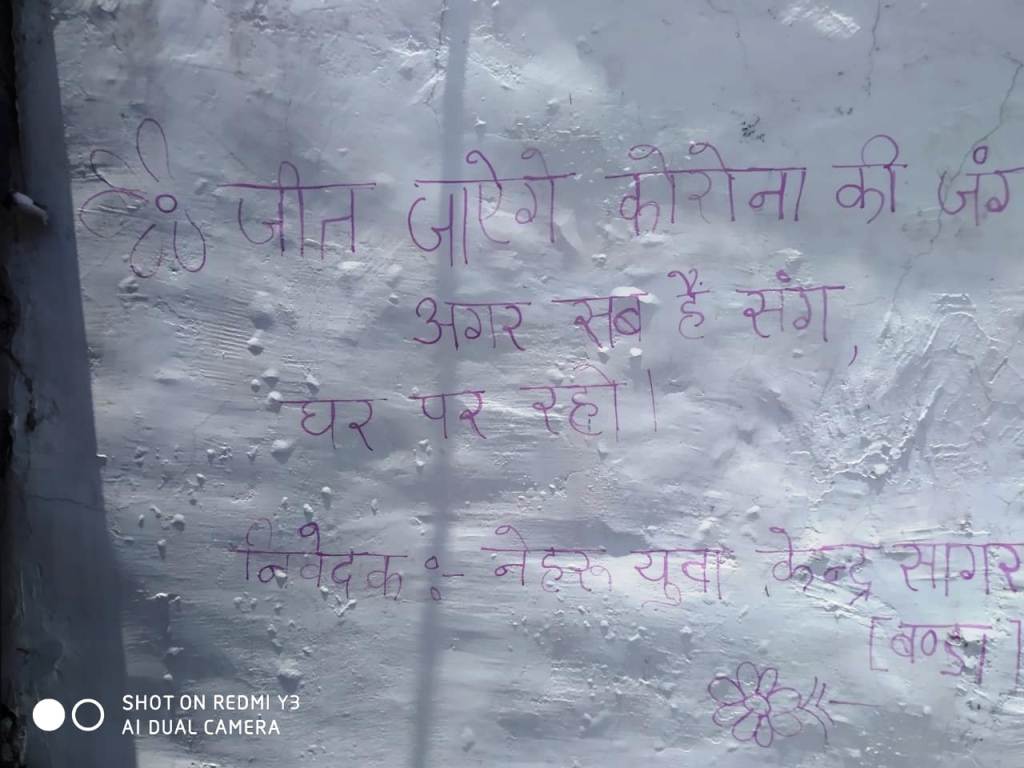 जीत जाऐगे कोरोना की जंग
अगर सब हैं संग,
घर पर रहो।
निवेदक :- नेहरू युवा केन्द्र सागर
[बण्डा]
SHOT ON REDMI Y3
AI DUAL CAMERA